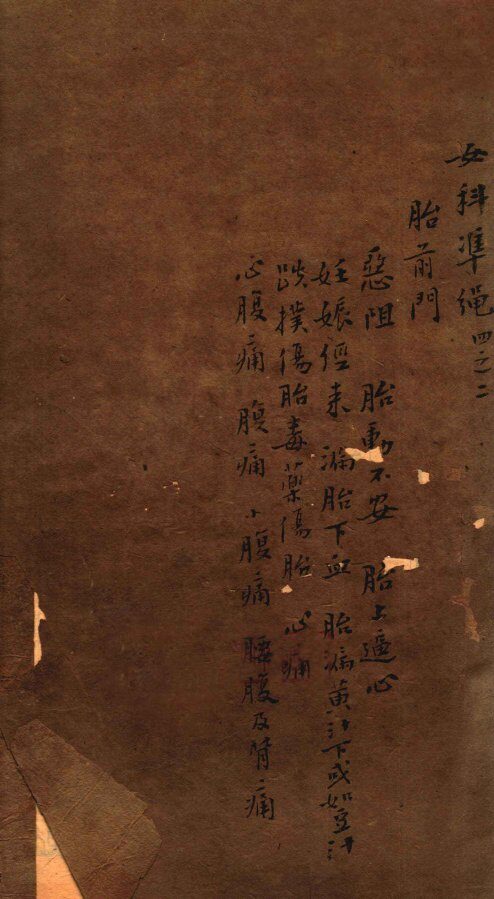 女科準繩四之二
胎前門
惡阻 胎動不安 胎上逼心
妊娠經來 漏胎下血 胎漏黃汁下或如豆汁
跌撲傷胎 毒藥傷胎 心痛
心腹痛 腹痛 小腹痛 腰腹及背痛